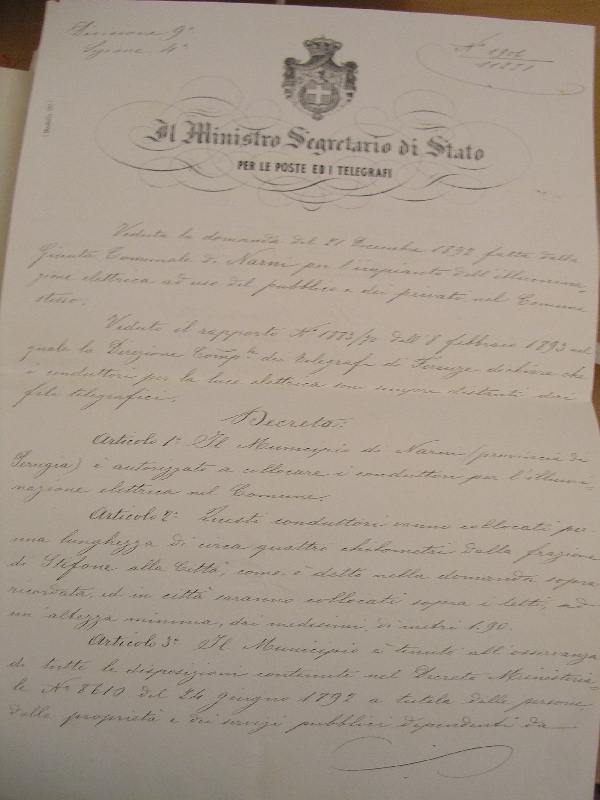 Divisione 9ª
Sezione 4ª
Nº 1906
11221
Il Ministro Segretario di Stato
PER LE POSTE ED I TELEGRAFI
Veduta la domanda del 21 Decembre 1892 fatta dalla
Giunta Comunale di Narni per l'impianto dell'illumina-
zione elettrica ad uso del pubblico e dei privati nel Comune
stesso.
Veduto il rapporto Nº 1883/70 dell'8 febbraio 1893 nel
quale la Direzione Comp.le dei telegrafi di Firenze dichiara che
i conduttori per la luce elettrica son sempre distanti dai
fili telegrafici.
Decreta:
Articolo 1º Il Municipio di Narni (provincia di
Perugia) è autorizzato a collocare i conduttori per l'illumi-
nazione elettrica nel Comune.
Articolo 2º Questi conduttori vanno collocati per
una lunghezza di circa quattro chilometri dalla frazione
di Stefone alla Città, come è detto nella domanda sopra
ricordata, ed in città saranno collocati sopra i tetti, ad
un'altezza minima, dai medesimi, di metri 1.90.
Articolo 3º Il Municipio è tenuto all'osservanza
di tutte le disposizioni contenute nel Decreto Ministeria-
le Nº 8610 del 24 giugno 1892 a tutela delle persone
della proprietà e dei servizi pubblici dipendenti da